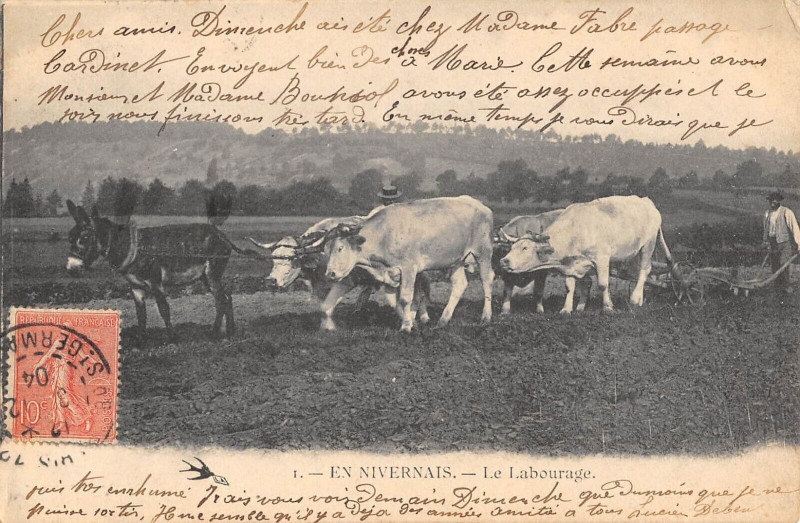 Chers amis. Dimenche ais été chez Madame Fabre passage
Cardinet. Envoyent bien des choses à Marie. Cette semaine avons
Monsieur et Madame avons été assez occuppés et le
soir nous finissons très tard. En même temps je vous dirais que je
RÉPUBLIQUE FRANÇAISE
10c
ST GERMA
04
1. — EN NIVERNAIS. — Le Labourage.
suis très enrhumé J'irais vous voir demain Dimenche que du moins que je ne
puisse sortir, Il me semble qu'il y a déja des années amitié à tous Lucien